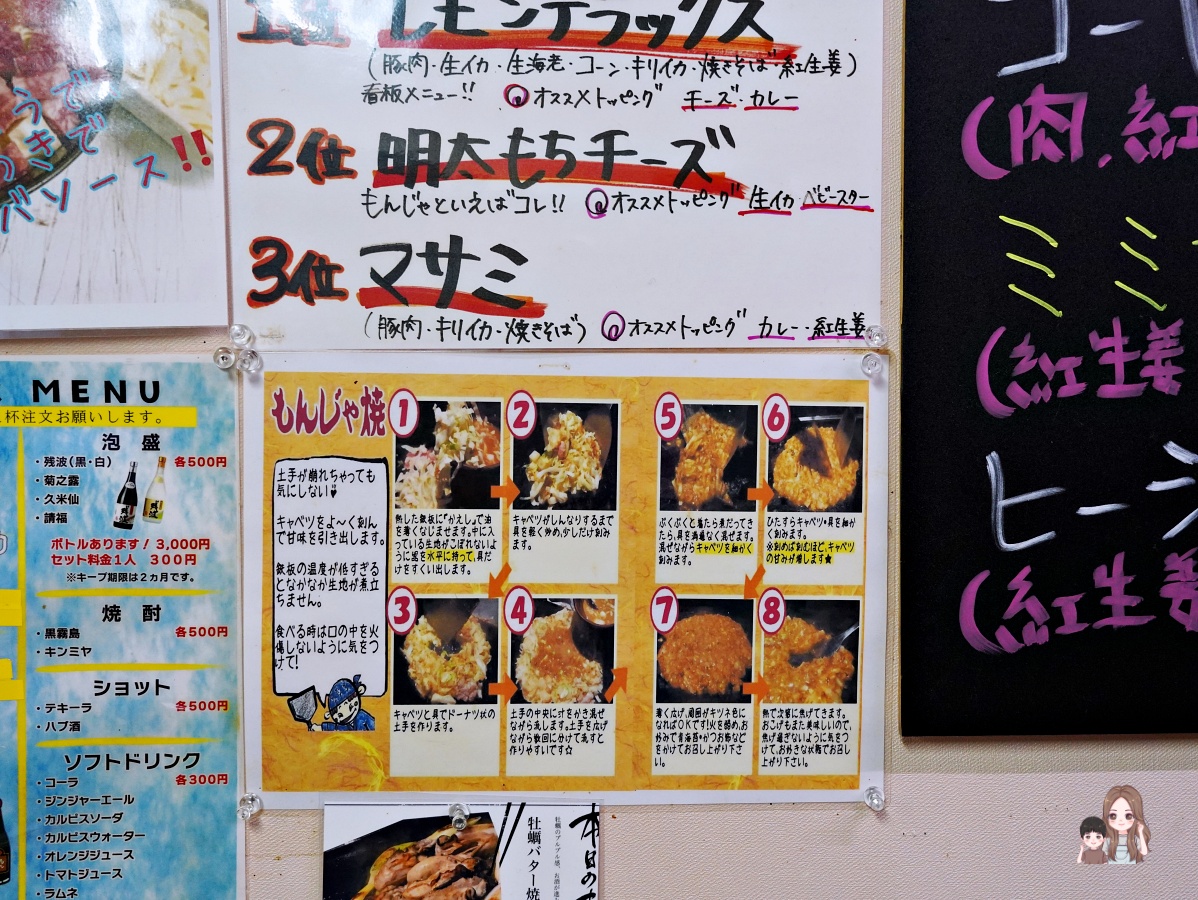 1位 レモンデラックス
(豚肉・生イカ・生海老・コーン・キリイカ・焼きそば・紅生姜)
看板メニュー!! オススメトッピング チーズ・カレー
2位 明太もちチーズ
もんじゃといえばコレ!! オススメトッピング 生イカ ベビースター
3位 マサミ
(豚肉・キリイカ・焼きそば) オススメトッピング カレー・紅生姜
うで
つきで
バソース!!
MENU
杯注文お願いします。
泡盛
・残波(黒・白) 各500円
・菊之露
・久米仙
・請福
ボトルあります! 3,000円
セット料金1人 300円
※キープ期限は2ヵ月です。
焼酎
・黒霧島 各500円
・キンミヤ
ショット
・テキーラ 各500円
・ハブ酒
ソフトドリンク
・コーラ 各300円
・ジンジャーエール
・カルピスソーダ
・カルピスウォーター
・オレンジジュース
・トマトジュース
・ラムネ
もんじゃ焼
土手が崩れちゃっても
気にしない♥
キャベツをよ〜く刻ん
で甘味を引き出します。
鉄板の温度が低すぎる
となかなか生地が煮立
ちません。
食べる時は口の中を火
傷しないように気をつ
けて!
1
熱した鉄板に「かえし」で油
を薄くなじませます。中に入
っている生地がこぼれないよ
うに器を水平に持って、具だ
けをすくい出します。
2
キャベツがしんなりするまで
具を軽く炒め、少しだけ刻み
ます。
3
キャベツと具でドーナツ状の
土手を作ります。
4
土手の中央に汁をかき混ぜ
ながら流します。土手を広げ
ながら数回に分けて流すと
作りやすいです☆
5
ぷくぷくと煮たら煮だってき
たら、具を満遍なく混ぜます。
混ぜながらキャベツを細かく
刻みます。
6
ひたすらキャベツ・具を細か
く刻みます。
※刻めば刻むほど、キャベツ
の甘みが増します★
7
薄く広げ、周囲がキツネ色に
なればOKです!火を弱め、お
好みで青海苔・かつお粉など
をかけてお召し上がり下さ
い。
8
熱で次第に焦げてきます。
おこげもまた美味しいので、
焦げ過ぎないように気をつ
けて、お好きな状態でお召し
上がり下さい。
本日の
牡蠣のプルプル感、お酒が進
牡蠣バター焼
コー
(肉,紅
ミミ
(紅生姜
ヒーン
(紅生姜